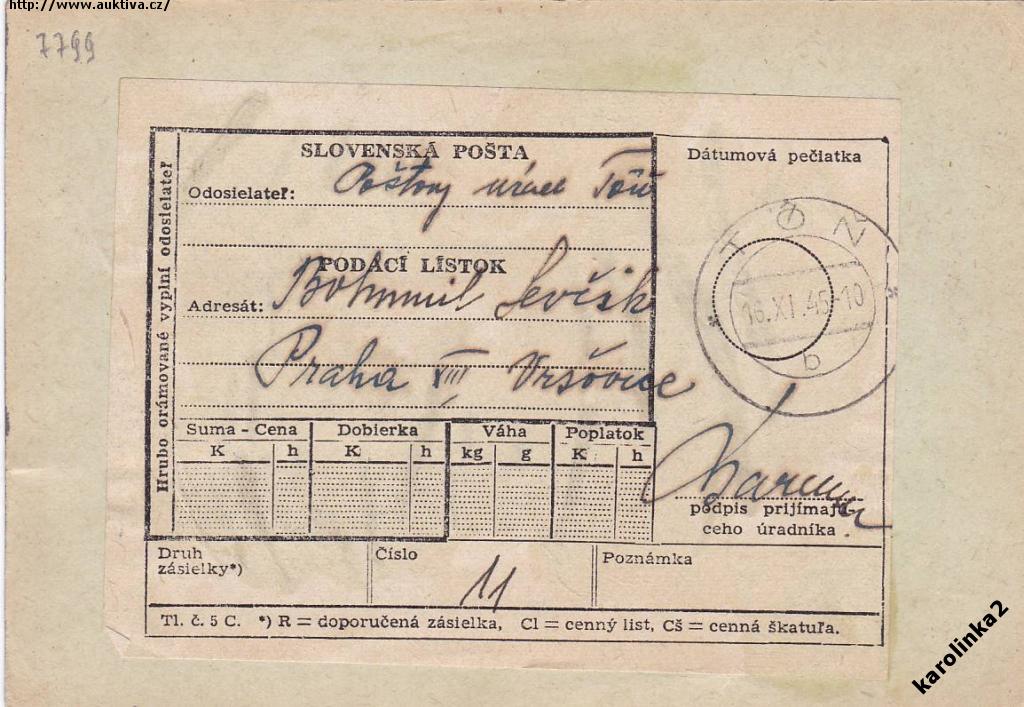 http://www.auktiva.cz/
7799
SLOVENSKÁ POŠTA
Odosielateľ: Poštový úrad Tôň
PODACÍ LÍSTOK
Adresát: Bohumil Ševčík
Praha XIII Vršovice
Hrubo orámované vyplní odosielateľ
Suma - Cena Dobierka Váha Poplatok
K h K h kg g K h
Dátumová pečiatka
TÔŇ
16.XI.45-10
b
podpis prijímajú-
ceho úradníka
Druh
zásielky*)
Číslo 11
Poznámka
Tl. č. 5 C. *) R = doporučená zásielka, Cl = cenný list, Cš = cenná škatuľa.
karolinka2